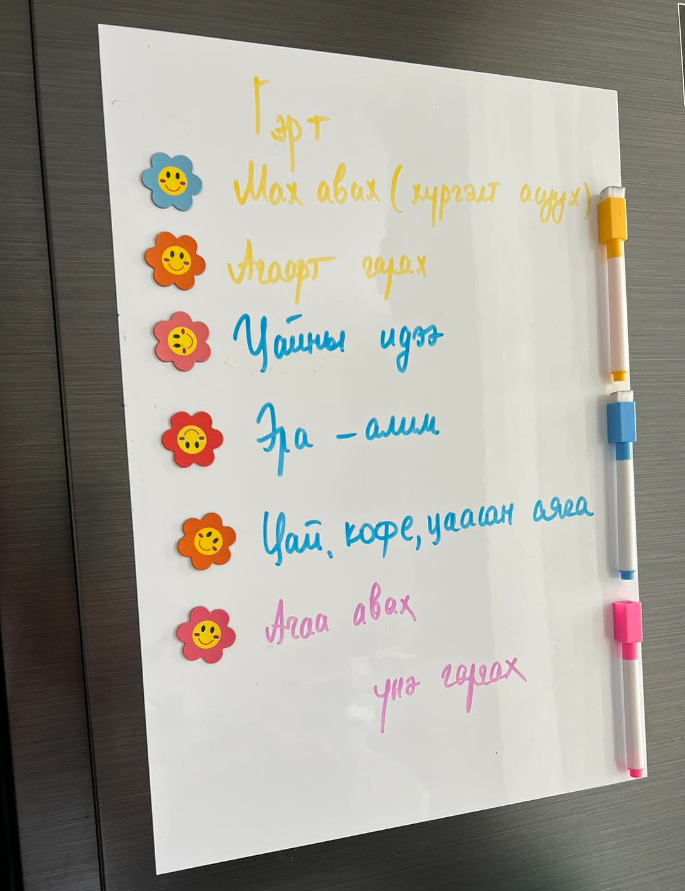 Гэрт
Мах авах (хүргэлт асуух)
Агаарт гарах
Цайны идээ
Эра - алим
Цай, кофе, цаасан аяга
Ачаа авах
үнэ гаргах